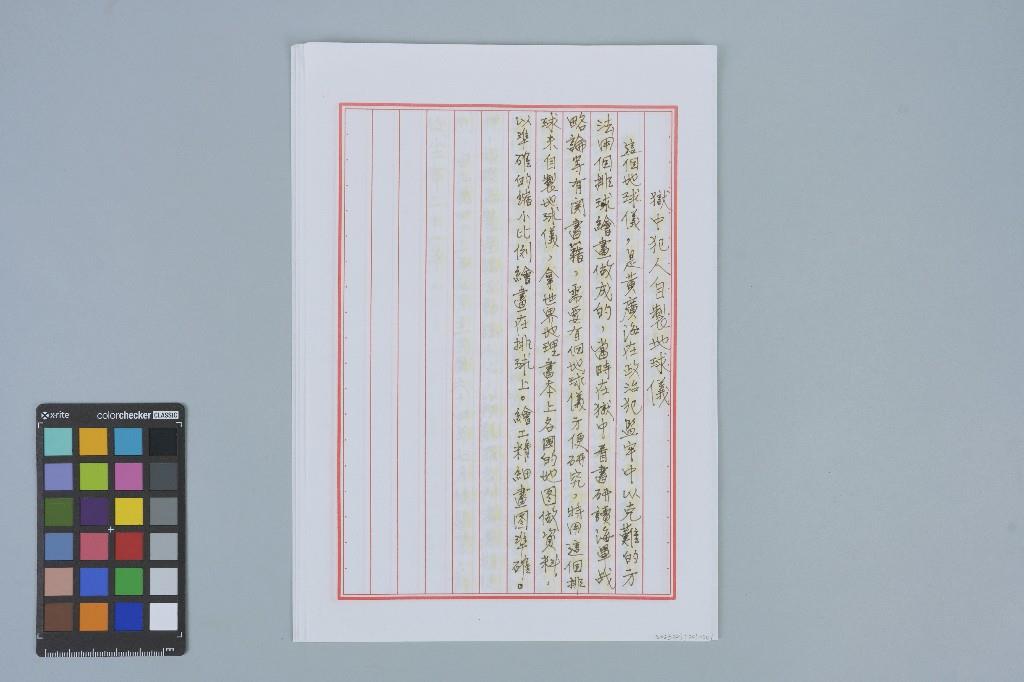 獄中犯人自製地球儀
這個地球儀，是黃廣海在政治犯監牢中以克難的方
法用個排球繪畫做成的，當時在獄中看書研讀海軍战
略論等有関書籍，需要有個地球儀方便研究，特用這個排
球来自製地球儀，拿世界地理書本上各國的地图做資料，
以準確的縮小比例繪畫在排球上。繪工精細畫图準確。
x-rite
colorchecker CLASSIC